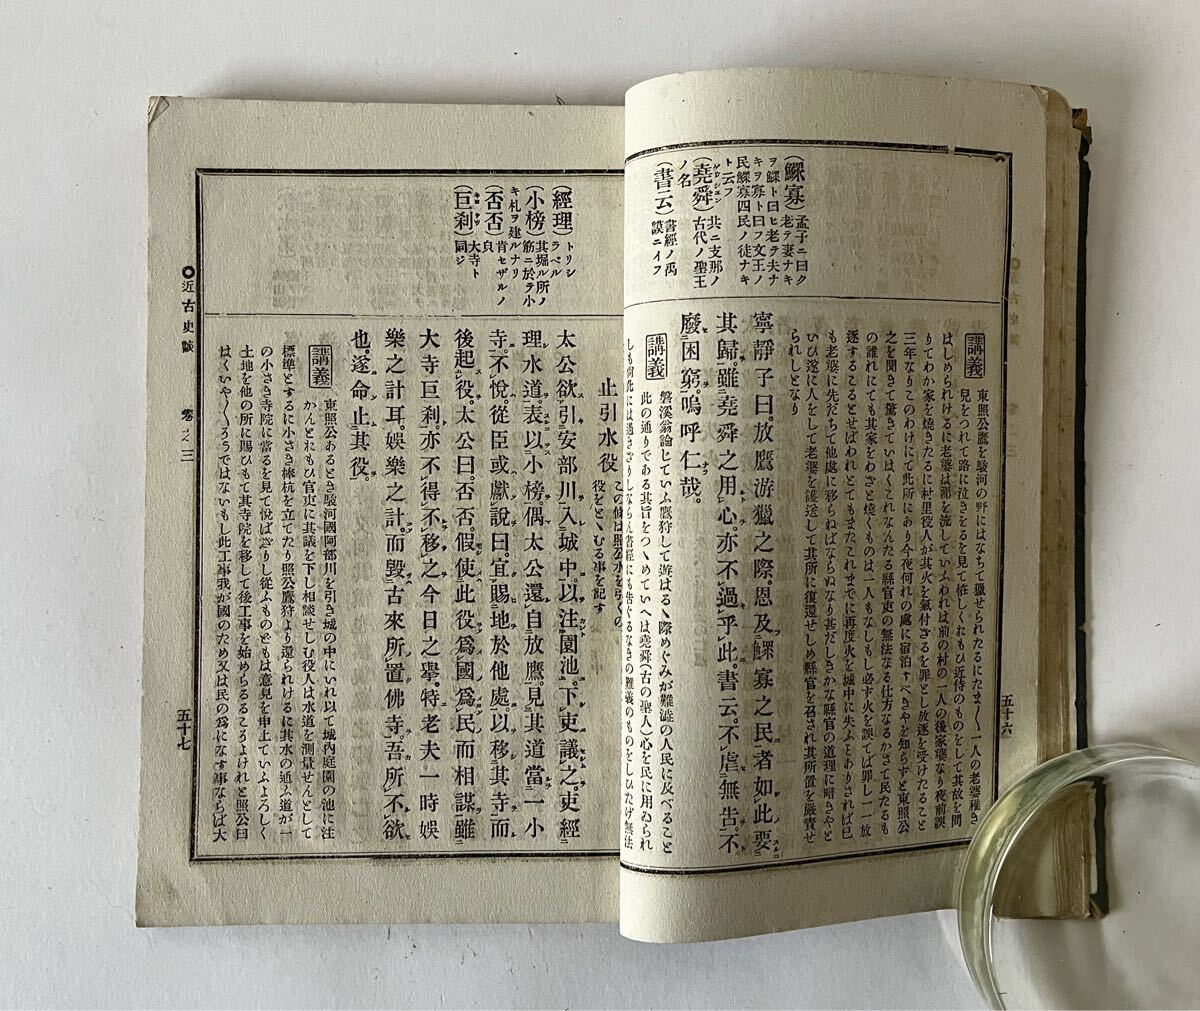 五十六
(鰥寡)
孟子ニ曰ク
老テ妻ナキ
ヲ鰥ト曰ヒ老テ夫ナ
キヲ寡ト曰フ文王ノ
民鰥寡四民ノ徒ナキ
ト云フ
(堯舜)
共ニ支那ノ
古代ノ聖王
ノ名
(書云)
書經ノ禹
謨ニイフ
講義
東照公鷹を駿河の野にはなちて獵せられたるにたま〳〵一人の老婆稚き
兒をつれて路に泣きをるを見て怪しくおもひ近侍のものをして其故を問
はしめられけるに老婆は涕を流していふわれは前の村の一人の後家婆なり夜前誤
りてわか家を燒きたるに村里役人が其火を氣付ざるを罪とし放逐を受けたること
三年なりこのわけにて此所にあり今夜何れの處に宿泊すべきやを知らずと東照公
之を聞きて驚きていはくこれなんたる縣官吏の無法なる仕方なるかさて民たるも
の誰れにても其家をわざと燒くものは一人もなしもし必ず火を誤てば罪し一一放
逐することとせばわれとてもまたこれまでに再度火を城中に失ふことありされば已
も老婆に先だちて他處に移らねばならぬなり甚だしきかな縣官の道理に暗きやと
いひ遂に人をして老婆を護送して其所に復還せしめ縣官を召され其所置を嚴責せ
られしとなり
寧靜子曰。放鷹游獵之際。恩及鰥寡之民者如此。要
其歸。雖堯舜之用心。亦不過乎此。書云。不虐無告。不
廢困窮。嗚呼仁哉。
講義
磐溪翁論じていふ鷹狩して遊はるゝ際めぐみが難澁の人民に及べること
此の通りである其旨をつゝめていへは堯舜(古の聖人)心を民に用ゐられ
しも尙此には過ぎざりしならん書經にも告ぐるなきの難義のものをしひたげ無法
(經理)
トリシ
ラベル
(小榜)
其堀ル所ノ
筋ニ於テ小
キ札ヲ建ルナリ
(否否)
肯セザルノ
㒵
(巨刹)
大寺ト
同ジ
止引水役
この條は照公水を引くの
役をとゝむる事を記す
太公欲引安部川入城中。以注園池。下吏議之。吏經
理水道。表以小榜。偶太公還自放鷹。見其道當一小
寺。不悅。從臣或獻說曰。宜賜地於他處。以移其寺。而
後起役。太公曰。否否。假使此役爲國爲民而相謀。雖
大寺巨刹。亦不得不移之。今日之擧。特老夫一時娛
樂之計耳。娛樂之計。而毀古來所置佛寺。吾所不欲
也。遂命止其役。
講義
東照公あるとき駿河國阿部川を引き城の中にいれ以て城內庭園の池に注
かんとおもひ官吏に其議を下し相談せしむ役人は水道を測量せんとして
標準とするに小さき棒杭を立てたり照公鷹狩より還られけるに其水の通ふ道が一
の小さき寺院に當るを見て悅ばざりし從ふものどもは意見を申上ていふよろしく
土地を他の所に賜ひもて其寺院を移して後工事を始めらるこそよけれと照公曰
はくいや〳〵さうではないもし此工事我が國のため又は民の爲になす事ならば大
〇近古史談
卷之三
五十七